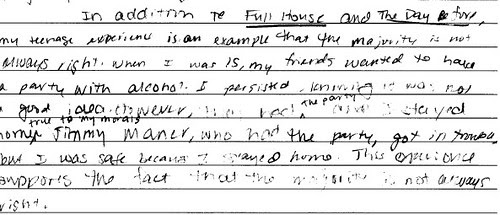 In addition to Full House and The Day Before,
my teenage experience is an example that the majority is not
always right. When I was 15, my friends wanted to have
a party with alcohol. I persisted, knowing it was not
a good idea. However, they had the party and I stayed
home true to my morals. Jimmy Maner, who had the party, got in trouble,
but I was safe because I stayed home. This experience
supports the fact that the majority is not always
right.